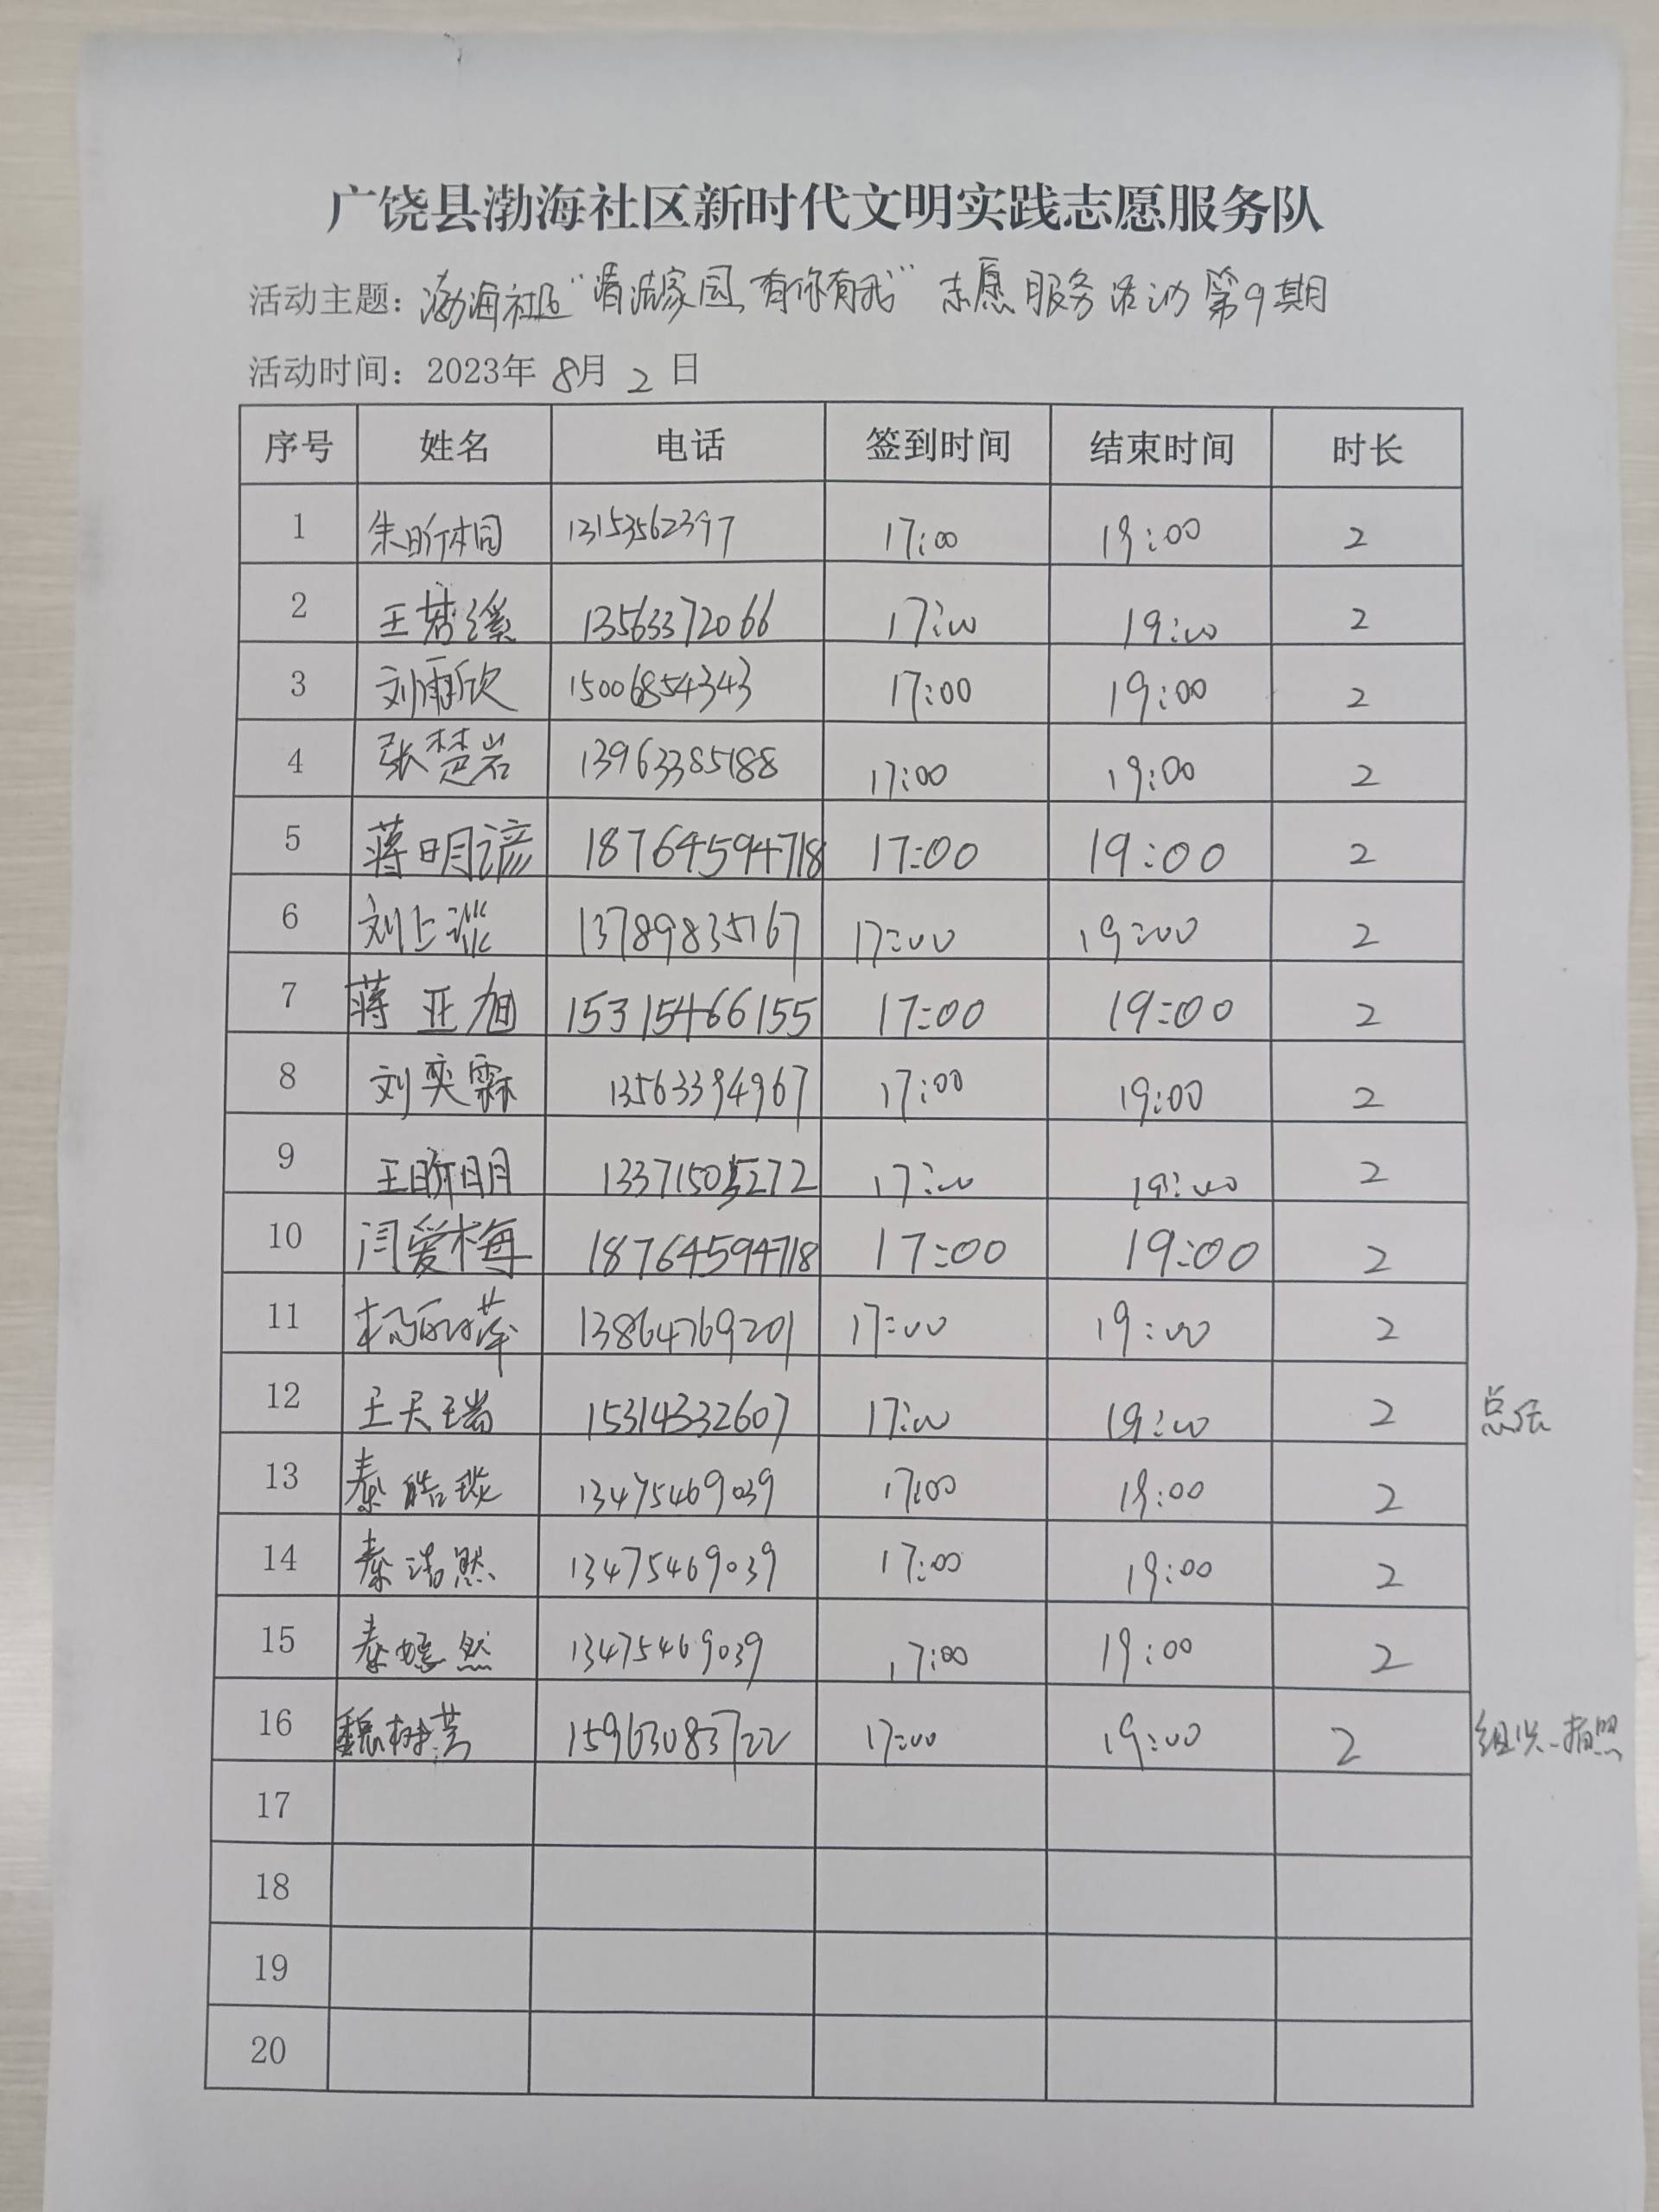 广饶县渤海社区新时代文明实践志愿服务队
活动主题：渤海社区“清洁家园，有你有我”志愿服务活动第9期
活动时间：2023年 8月 2 日
序号 姓名 电话 签到时间 结束时间 时长
1 朱昕桐 13153562397 17:00 19:00 2
2 王若溪 13563372066 17:00 19:00 2
3 刘雨欣 15006854343 17:00 19:00 2
4 张楚岩 13963385188 17:00 19:00 2
5 蒋明谚 18764594718 17:00 19:00 2
6 刘上 13789835167 17:00 19:00 2
7 蒋亚旭 15315466155 17:00 19:00 2
8 刘奕霖 13563394967 17:00 19:00 2
9 王昕明 13371505272 17:00 19:00 2
10 闫爱梅 18764594718 17:00 19:00 2
11 杨丽萍 13864769201 17:00 19:00 2
12 王天瑞 15314332607 17:00 19:00 2 总结
13 秦皓琰 13475469039 17:00 19:00 2
14 秦浩然 13475469039 17:00 19:00 2
15 秦嫣然 13475469039 17:00 19:00 2
16 魏树芳 15963083722 17:00 19:00 2 组织、拍照
17
18
19
20